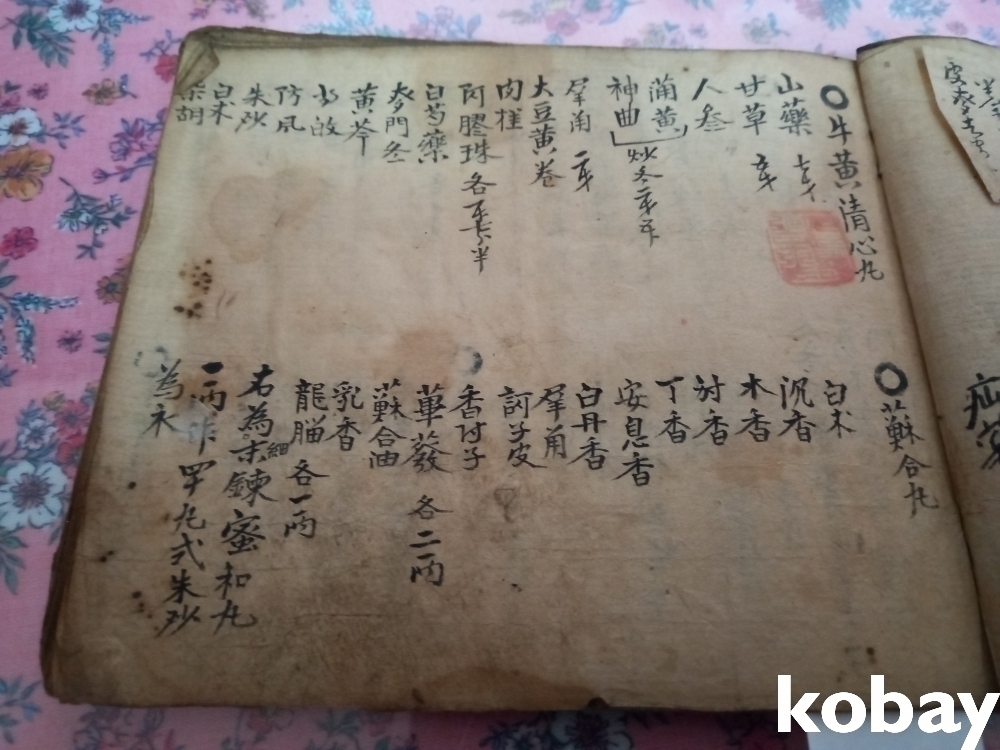 牛黄清心丸
山藥 七戔
甘草 五戔
人參
蒲黄
神曲 炒各二戔五
犀角 二戔
大豆黄卷
肉桂
阿膠珠 各一戔七分半
白芍藥
麥門冬
黄芩
當放
防风
朱砂
白朮
柴胡
蘇合丸
白朮
沉香
木香
射香
丁香
安息香
白丹香
犀角
訶子皮
香付子
蓽發 各二両
蘇合油
乳香
龍脳 各一両
右為末細鍊蜜和丸
一両作四十丸式朱砂
為衣
kobay